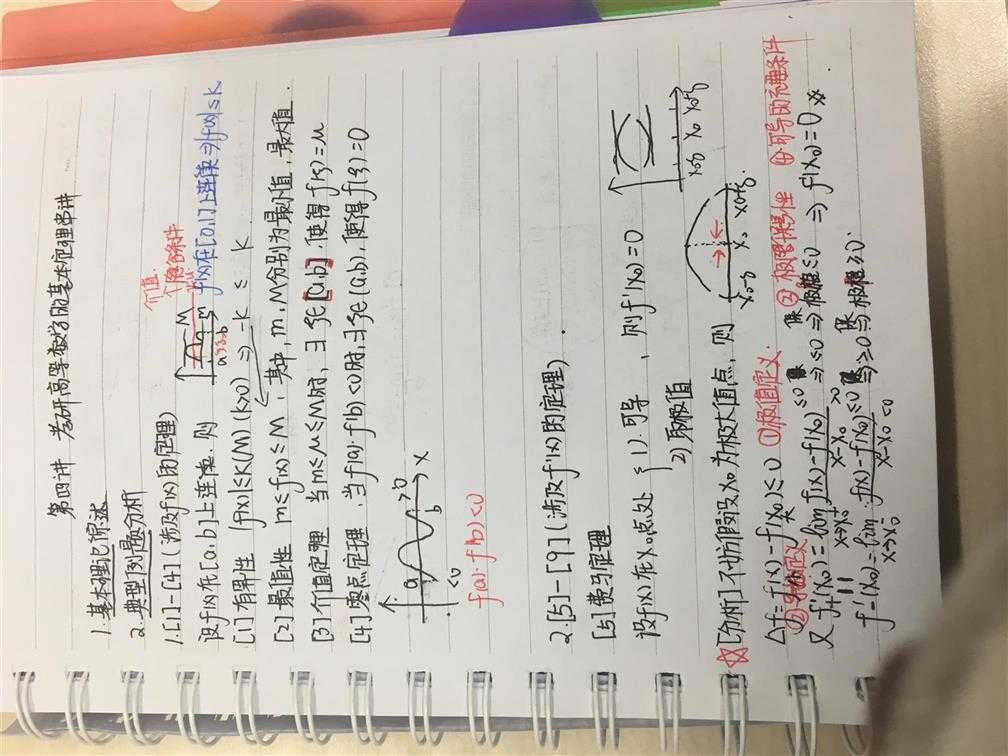 第四讲 考研高等数学的基本定理串讲
1.基本理论综述
2.典型习题分析
1.[1]-[4](涉及f(x)的定理)
介值
设f(x)在[a,b]上连续.则
f(x)在[a,b]上连续⇒|f(x)|≤k
[1]有界性 |f(x)|≤K(M)(k>0) ⇒ -k ≤ … ≤ k
[2]最值性 m≤f(x)≤M,其中,m,M分别为最小值,最大值.
[3]介值定理 当m≤μ≤M时,∃ξ∈[a,b],使得f(ξ)=μ
[4]零点定理.当f(a)·f(b)<0时,∃ξ∈(a,b),使得f(ξ)=0
a b x
<0 >0
f(a)·f(b)<0
2.[5]-[9](涉及f'(x)的定理).
[5]费马定理
设f(x)在x₀点处{1).可导,则f'(x₀)=0
2)取极值
☆[分析]不妨假设x₀为极大值点,则
x₀-δ x₀ x₀+δ
Δf=f(x)-f(x₀)≤0 ①极值定义. ②极限保号性 ④可导的充要条件
又f'₊(x₀)=lim x→x₀⁺ (f(x)-f(x₀) ≤0)/(x-x₀ >0) ⇒≤0⇒极限≤0 ⇒ f'(x₀)=0
f'₋(x₀)=lim x→x₀⁻ (f(x)-f(x₀)≤0)/(x-x₀ <0) ⇒≥0⇒极限≥0